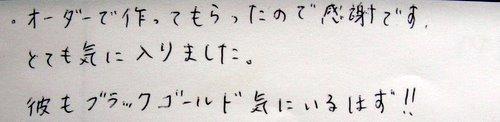 ・オーダーで作ってもらったので感謝です.
とても気に入りました。
彼もブラックゴールド気にいるはず!!